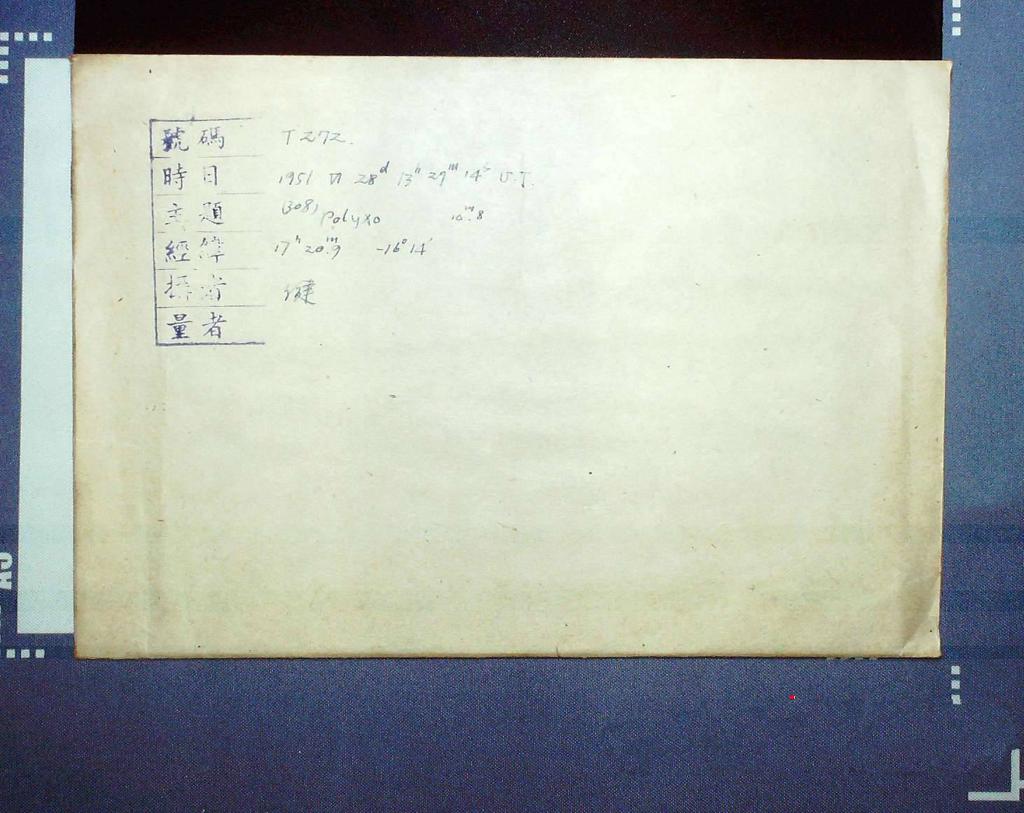 號碼 T 272.
時日 1951 VI 28ᵈ 13ʰ 29ᵐ 14ˢ U.T.
主題 (308) Polyxo 10ᵐ.8
經緯 17ʰ 20ᵐ.9 -16°14'
攝者 健
量者